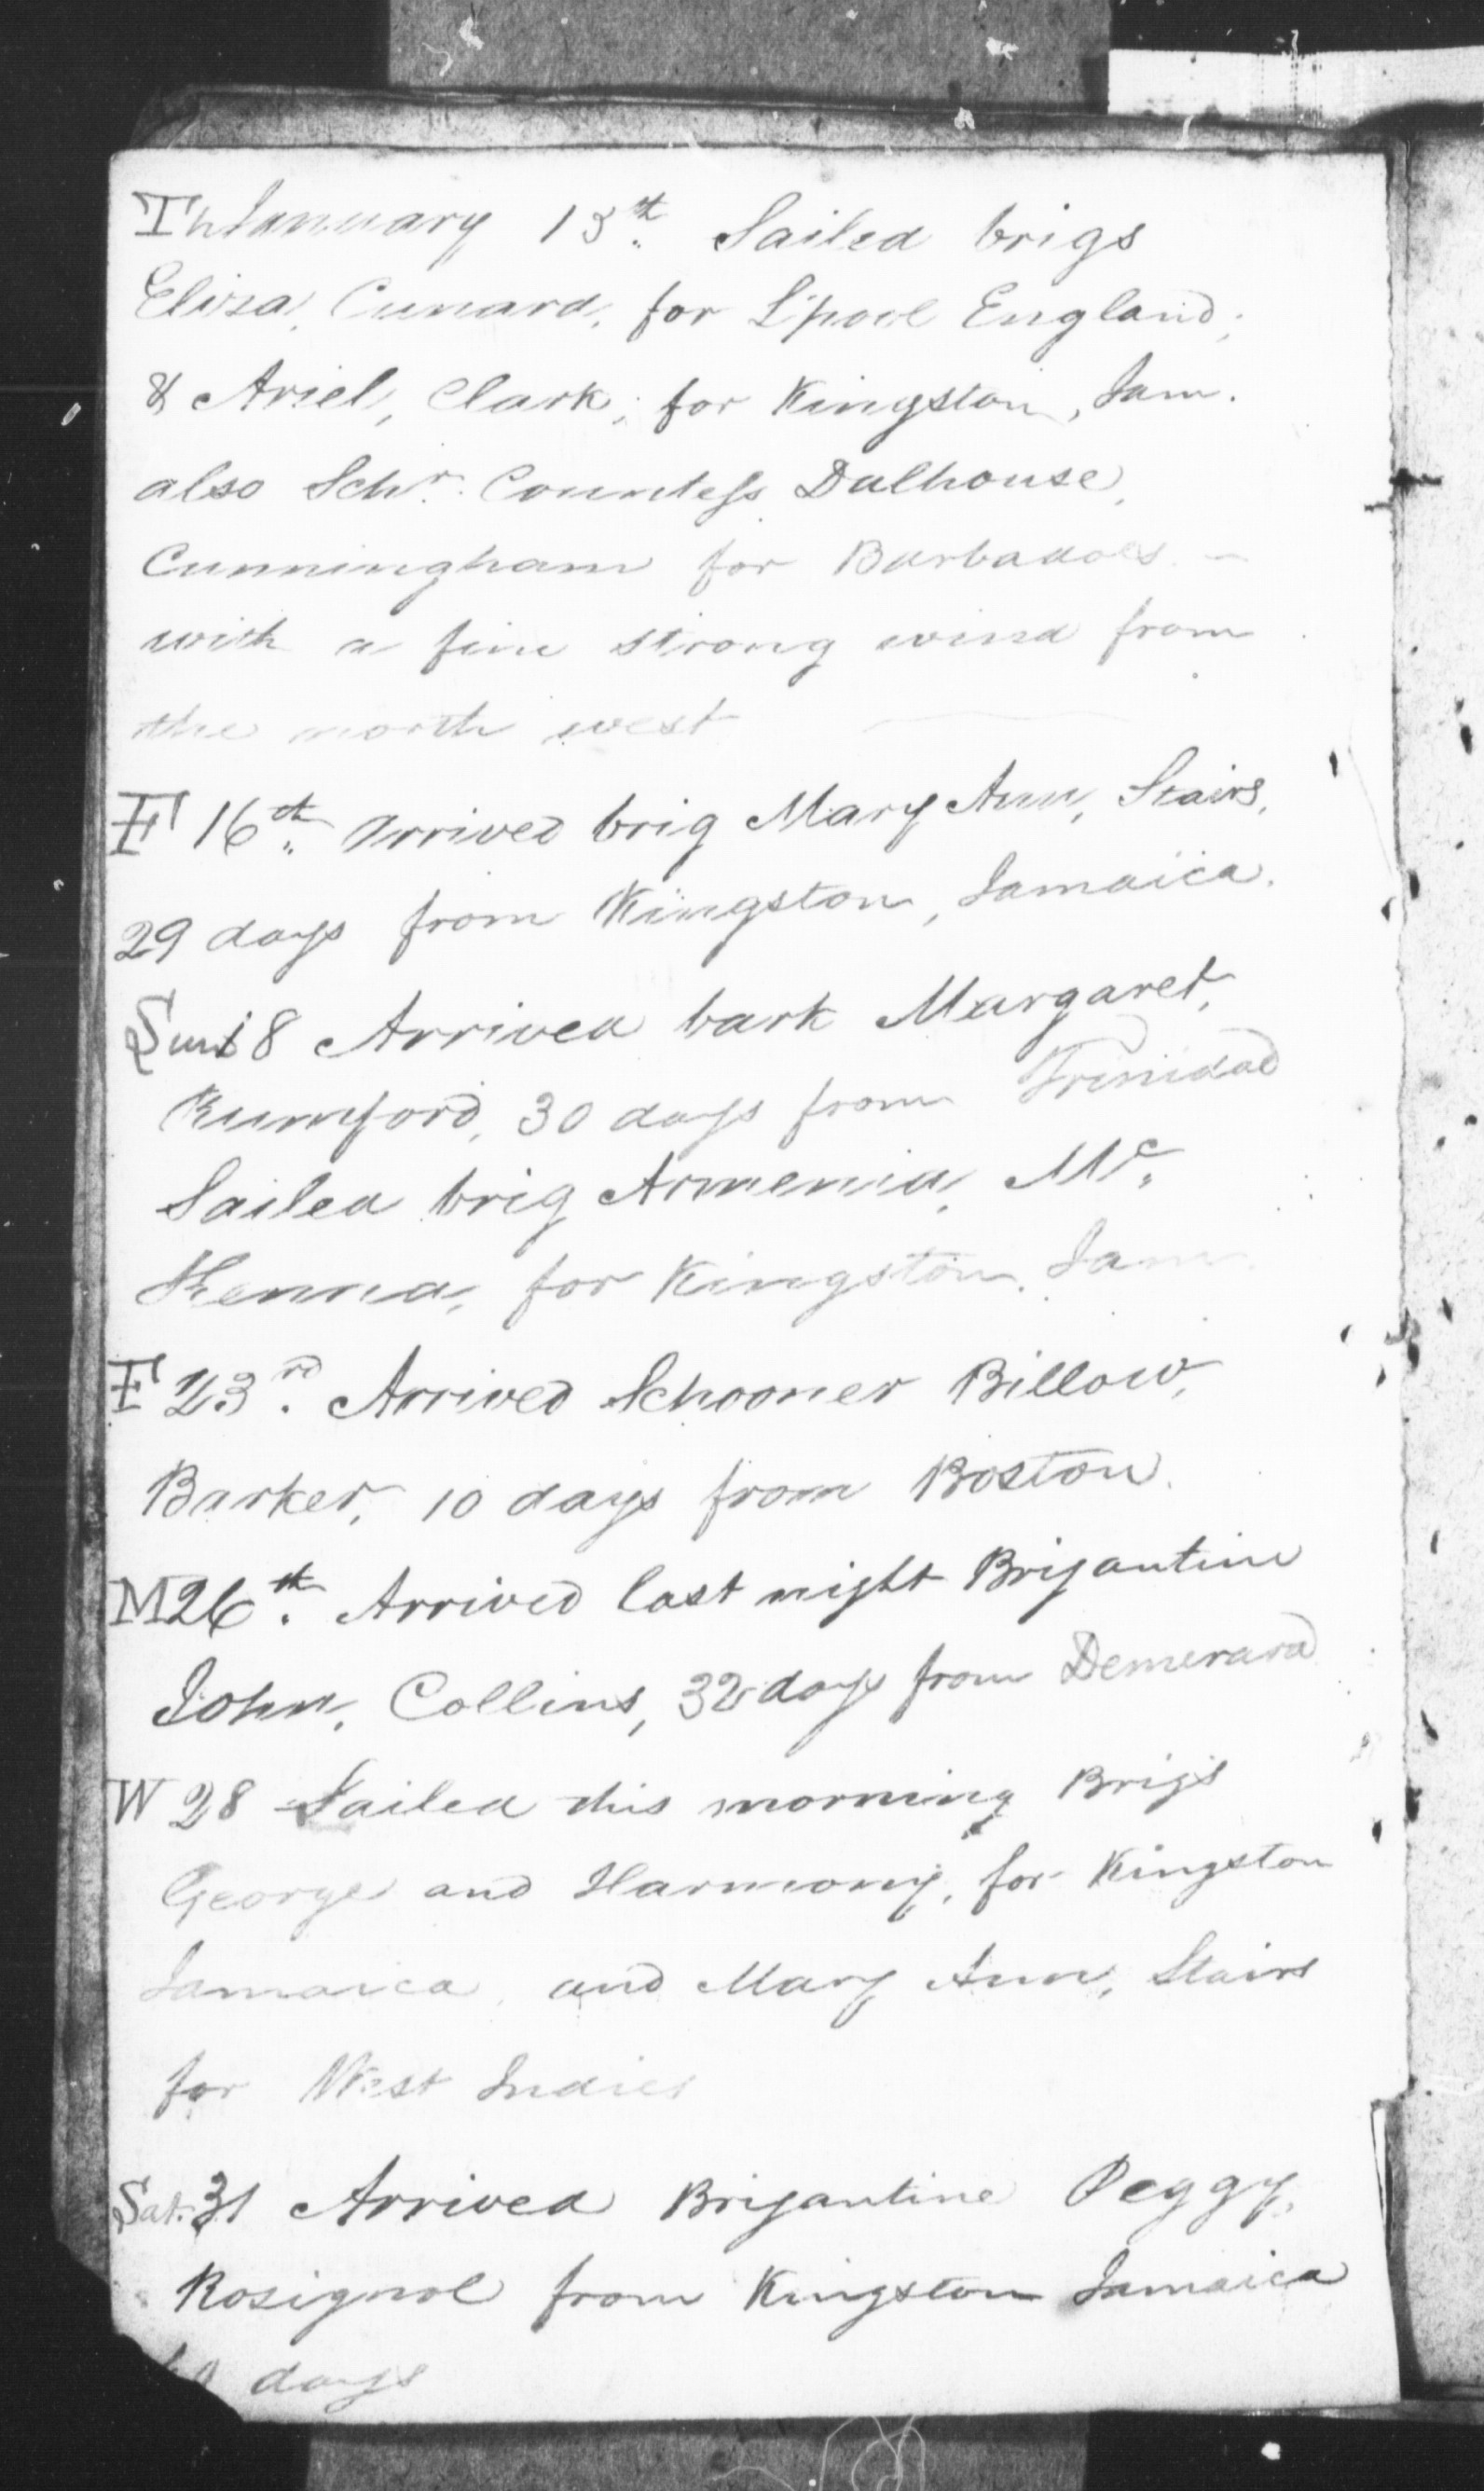 Th January 15th. Sailed brigs
Eliza, Cunard, for L'pool England;
& Ariel, Clark, for Kingston, Jam.
also Schr. Countess Dalhouse,
Cunningham for Barbadoes –
with a fine strong wind from
the north west
F 16th. Arrived brig Mary Ann, Stairs,
29 days from Kingston, Jamaica.
Sun 18 Arrived bark Margaret,
Rumford, 30 days from Trinidad
Sailed brig Armenia, Mc.
Kenna, for Kingston, Jam
F 23rd. Arrived Schooner Billow,
Barker, 10 days from Boston.
M 26th. Arrived last night Brigantine
John, Collins, 32 days from Demerara
W 28 Sailed this morning Brigs
George and Harmony, for Kingston
Jamaica, and Mary Ann, Stairs
for West Indies
Sat. 31 Arrived Brigantine Peggy,
Rosignol from Kingston Jamaica
days